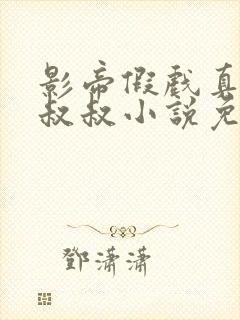 影帝假戲真
叔叔小說免
鄧瀟瀟